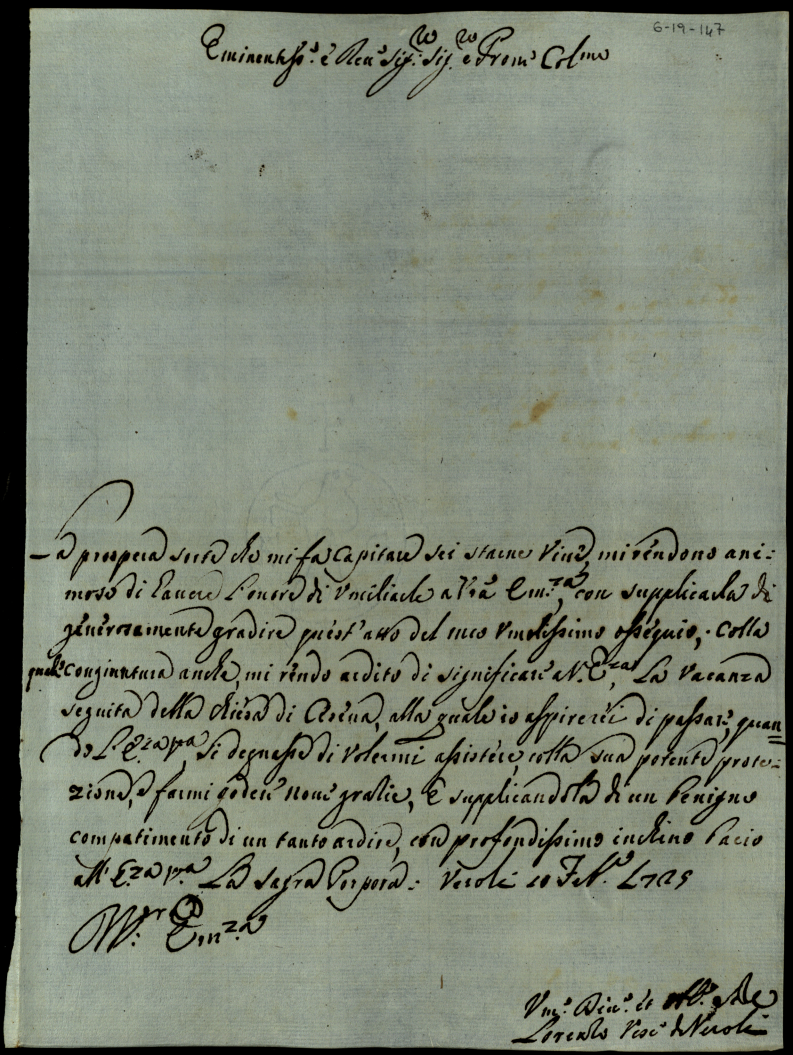 6-19-147
Eminentiss.o e Reu.o Sig.re Sig.re e Pron.e Col.mo
La prospera sorte che mi fa capitare sei starne viue, mi rendono ani:
moso di hauere l'onore di umiliarle a V.ra Em.za, con supplicarla di
generosamente gradire quest'atto del mio umilissimo ossequio,. Colla
quale congiuntura anche, mi rendo ardito di significare a V. E.za, La Vacanza
seguita della chiesa di, alla quale io aspirerei di passare, quan=
do l'E.za v.ra, si degnasse di volermi assistere, colla sua potente prote:
zione, e farmi godere noue gratie, E supplicandola di un benigno
compatimento di un tanto ardire, con profondissimo inchino bacio
all'E.za v.ra La Sagra Porpora:. Veroli 10 1725
V.ra Em.za
Um.o Diu.o et Obl.o
Lorenzo Vesc.o di Veroli